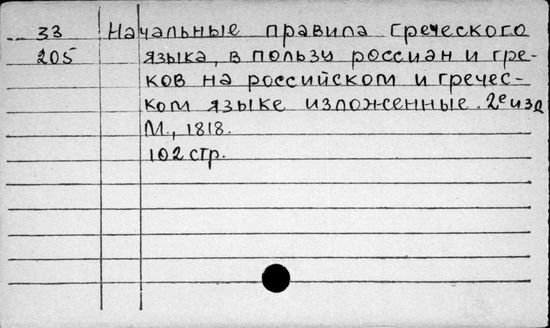 33 Начальные правила греческого
205 языка, в пользу россиан и гре-
ков на российском и гречес-
ком языке изложенные. 2е изд
М., 1818.
102 стр.